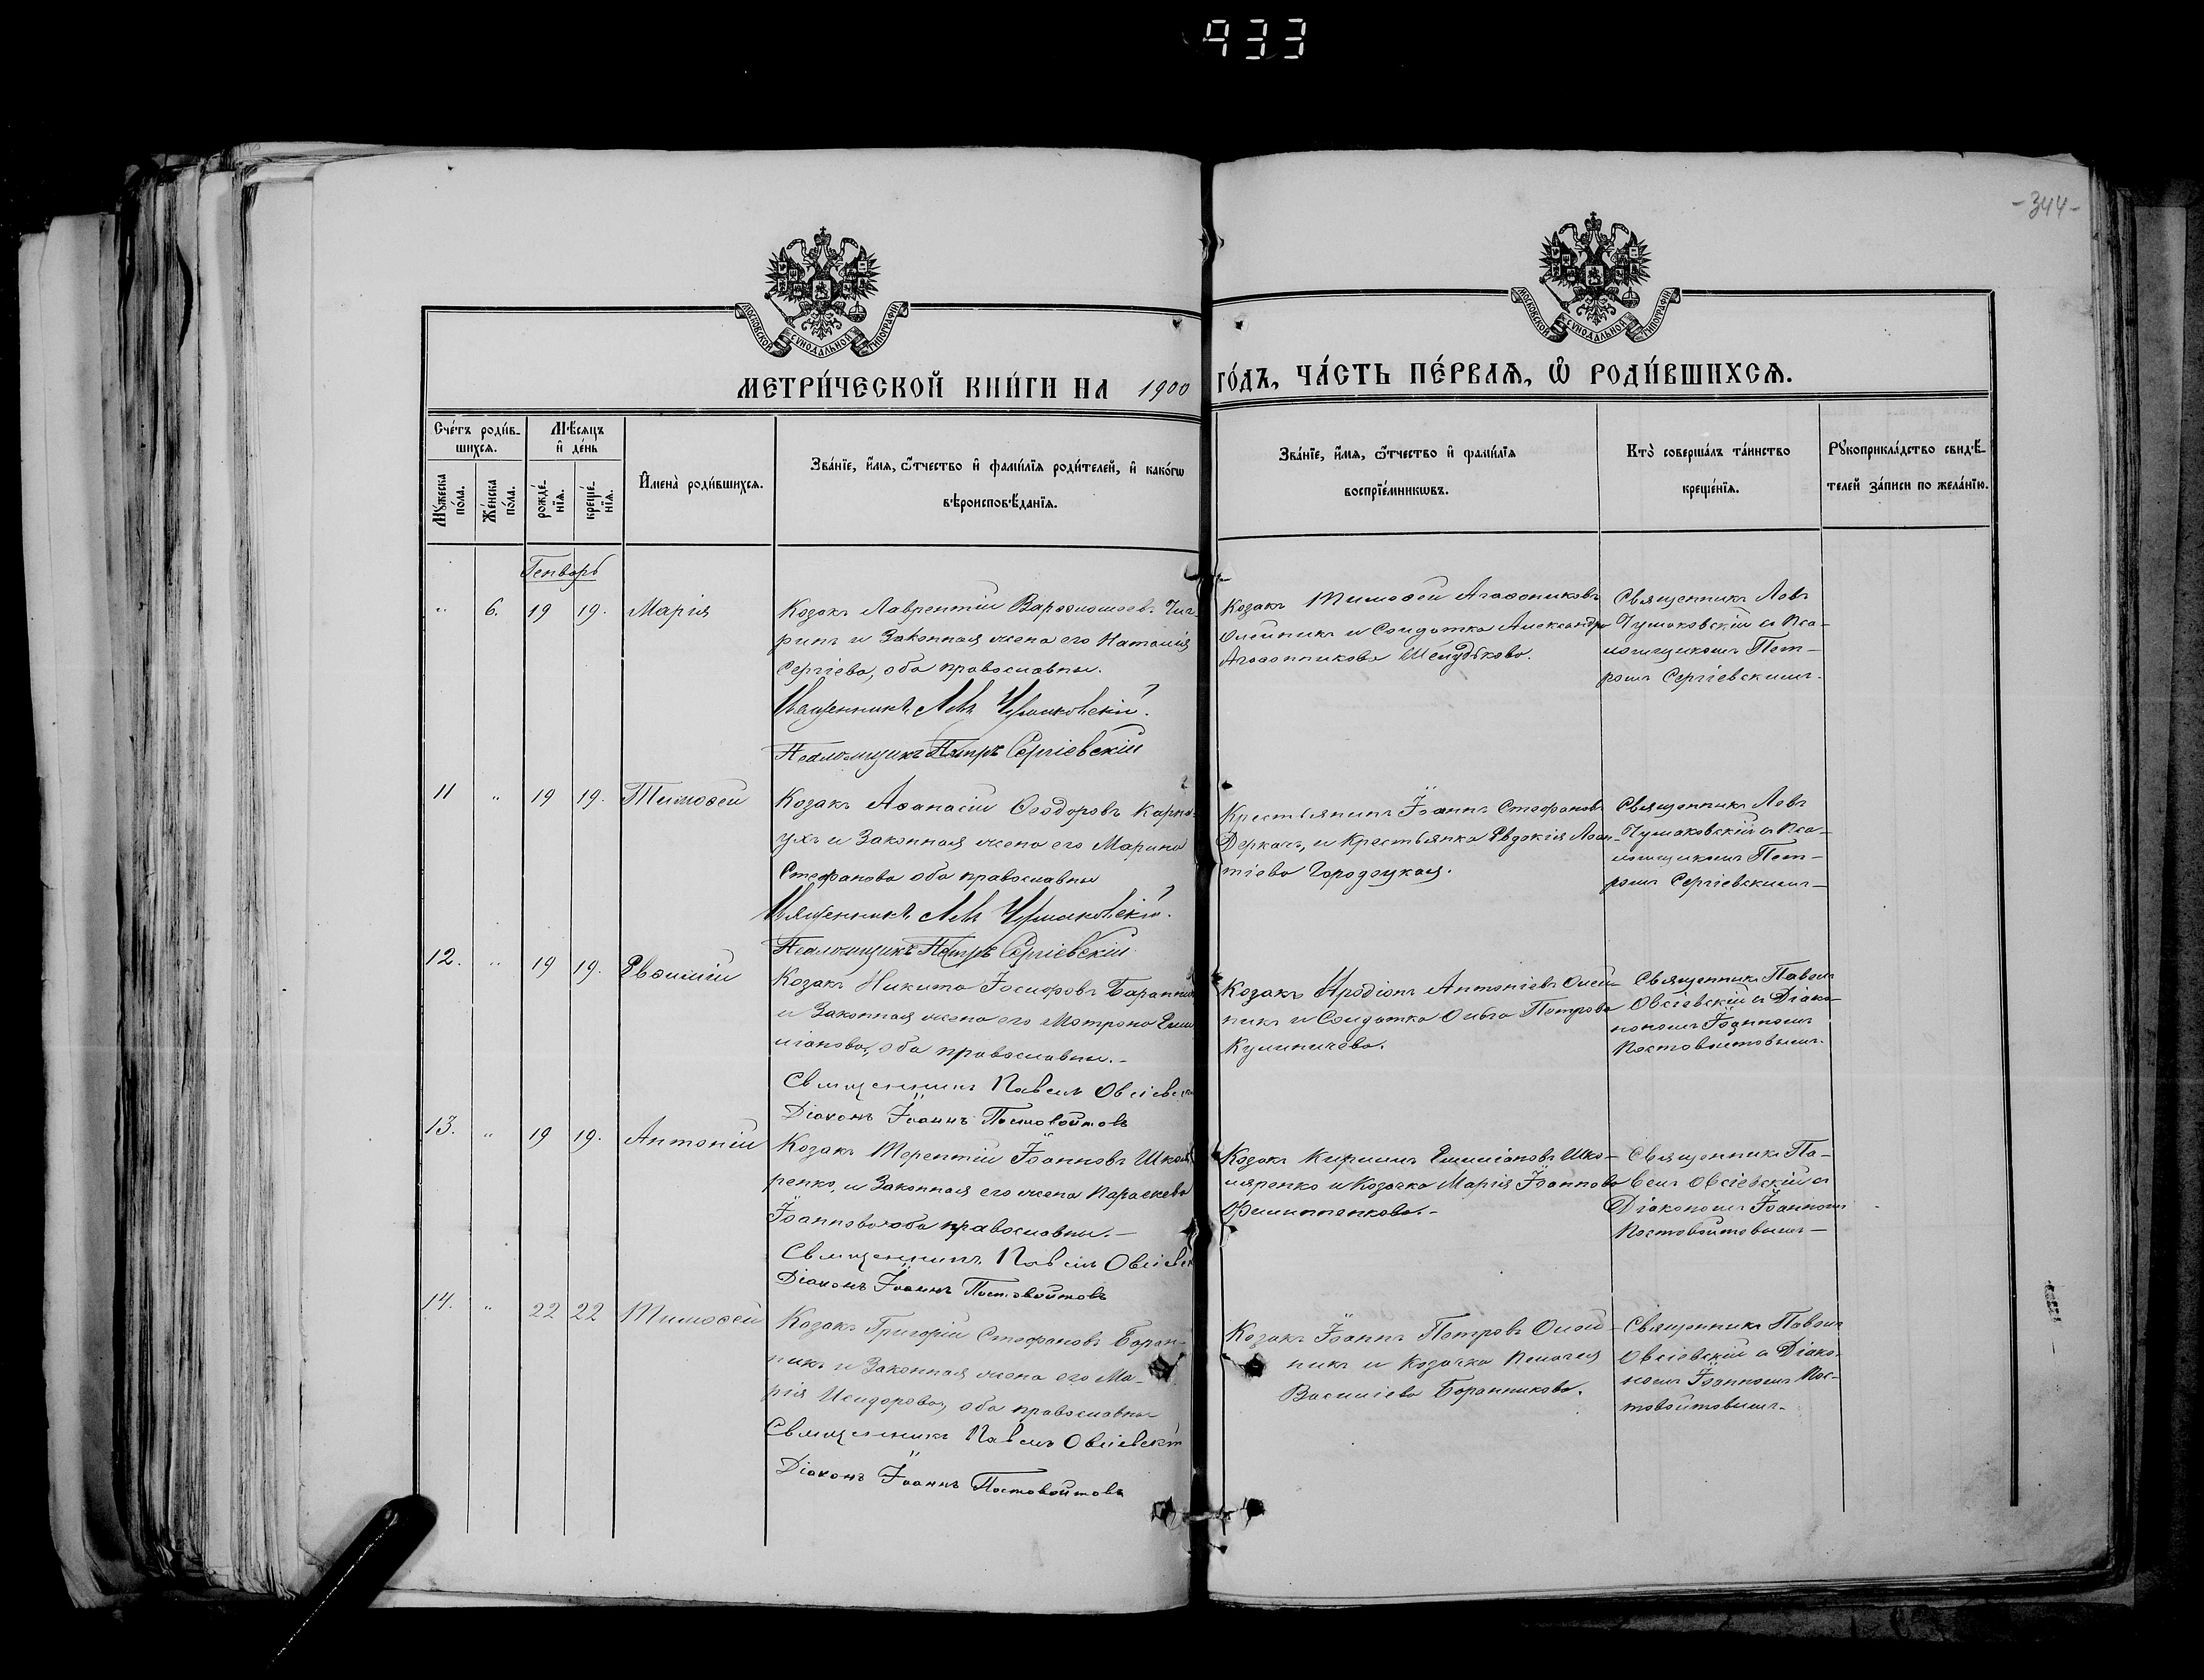 933
-344-
МОСКОВСКОЙ СѴНОДАЛЬНОЙ ТИПОГРАФІИ
МОСКОВСКОЙ СѴНОДАЛЬНОЙ ТИПОГРАФІИ
МЕТРИ́ЧЕСКОЙ КНИ́ГИ НА 1900 ГО́ДЪ, ЧА́СТЬ ПЕ́РВАѦ, Ѽ РОДИ́ВШИХСѦ.
Сче́тъ роди́в-
шихсѧ.
Мꙋ́жеска по́ла.
Же́нска по́ла.
Мѣ́сѧцъ
и҆ де́нь
рожде́-
нїѧ.
креще́-
нїѧ.
И҆мена̀ роди́вшихсѧ.
Зва́нїе, и҆́мѧ, ѻ҆́тчество и҆ фами́лїѧ роди́телей, и҆ како́гѡ
вѣроисповѣ́данїѧ.
Зва́нїе, и҆́мѧ, ѻ҆́тчество и҆ фами́лїѧ
воспрїе́мникѡвъ.
Кто̀ соверша́лъ та́инство
креще́нїѧ.
Рꙋкоприкла́дство свидѣ́-
телей за́писи по жела́нїю.
Генварь
„ 6. 19 19. Марія
Козакъ Лаврентій Варѳоломеевъ
ринъ и законная жена его Наталія
Сергіева, оба православны.
Священникъ Левъ Чумаковскій.
Псаломщикъ Петръ Сергіевскій
Козакъ Тимоѳей Агаѳониковъ
Олейникъ и Солдатка Александра
Агаѳонникова
Священникъ Левъ
Чумаковскій съ Пса-
ломщикомъ Пет-
ромъ Сергіевскимъ.
11 „ 19 19. Тимоѳей
Козакъ Аѳанасій Ѳеодоровъ Карпо-
ухъ и законная жена его Марина
Стефанова оба православны
Священникъ Левъ Чумаковскій.
Псаломщикъ Петръ Сергіевскій
Крестьянинъ Іоаннъ Стефановъ
Деркачъ, и крестьянка Евдокія Леон-
тіева Городецкая.
Священникъ Левъ
Чумаковскій съ Пса-
ломщикомъ Пет-
ромъ Сергіевскимъ
12. „ 19 19. Евѳимій
Козакъ Никита Іосифовъ Баранник
и законная жена его Матрона Еми
ліанова, оба православны.-
Священникъ Павелъ Овсіевск
Діаконъ Іоаннъ Постовойтовъ
Козакъ Иродіонъ Антоніевъ Олей-
никъ и Солдатка Ольга Петрова
Кулиничева.
Священникъ Павелъ
Овсіевскій съ Діако-
нономъ Іоанномъ
Постовойтовымъ.
13. „ 19 19. Антоній
Козакъ Терентій Іоанновъ Школя
ренко, и законная его жена Параскева
Іоаннова оба православны.-
Священникъ Павелъ Овсіевск
Діаконъ Іоаннъ Постовойтовъ
Козакъ Кириллъ Емиліановъ Шко-
ляренко и Козачка Марія Іоаннова
Филиппенкова.-
Священникъ Па-
велъ Овсіевскій съ
Діакономъ Іоанномъ
Постовойтовымъ
14. „ 22 22 Тимоѳей
Козакъ Григорій Стефановъ Баран-
никъ и законная жена его Ма-
рія Исидорова, оба православны
Священникъ Павелъ Овсіевскій
Діаконъ Іоаннъ Постовойтовъ
Козакъ Іоаннъ Петровъ Олей-
никъ и Козачка Пелагея
Василіева Баранникова.
Священникъ Павелъ
Овсіевскій съ Діако-
номъ Іоанномъ Пос-
товойтовымъ.